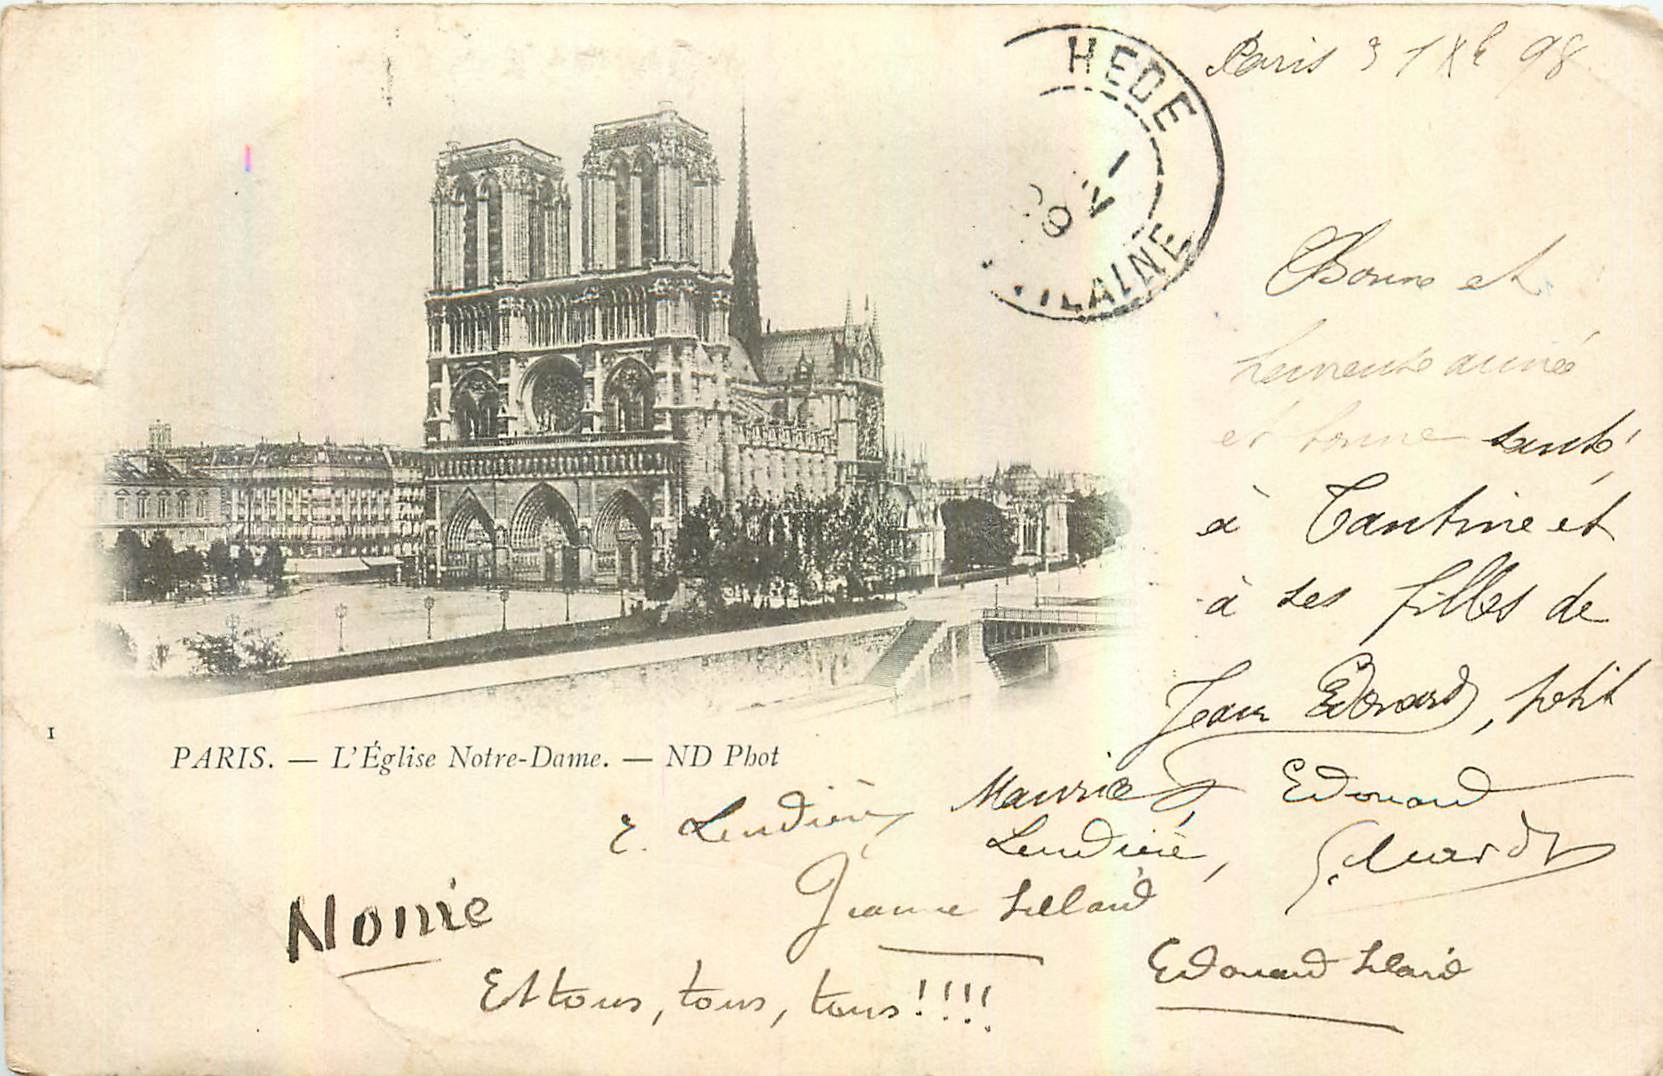 Paris 31 Xe 98
HEDE
VILAINE
Bonne et
heureuse année
et bonne santé
à Tantine et
à ses filles de
Jean Edouard, petit
Maurice, Edouard
E. Lendière,
Lendière,
Jeanne
Edouard
Nonie
Et tous, tous, tous!!!!
1
PARIS. — L'Église Notre-Dame. — ND Phot